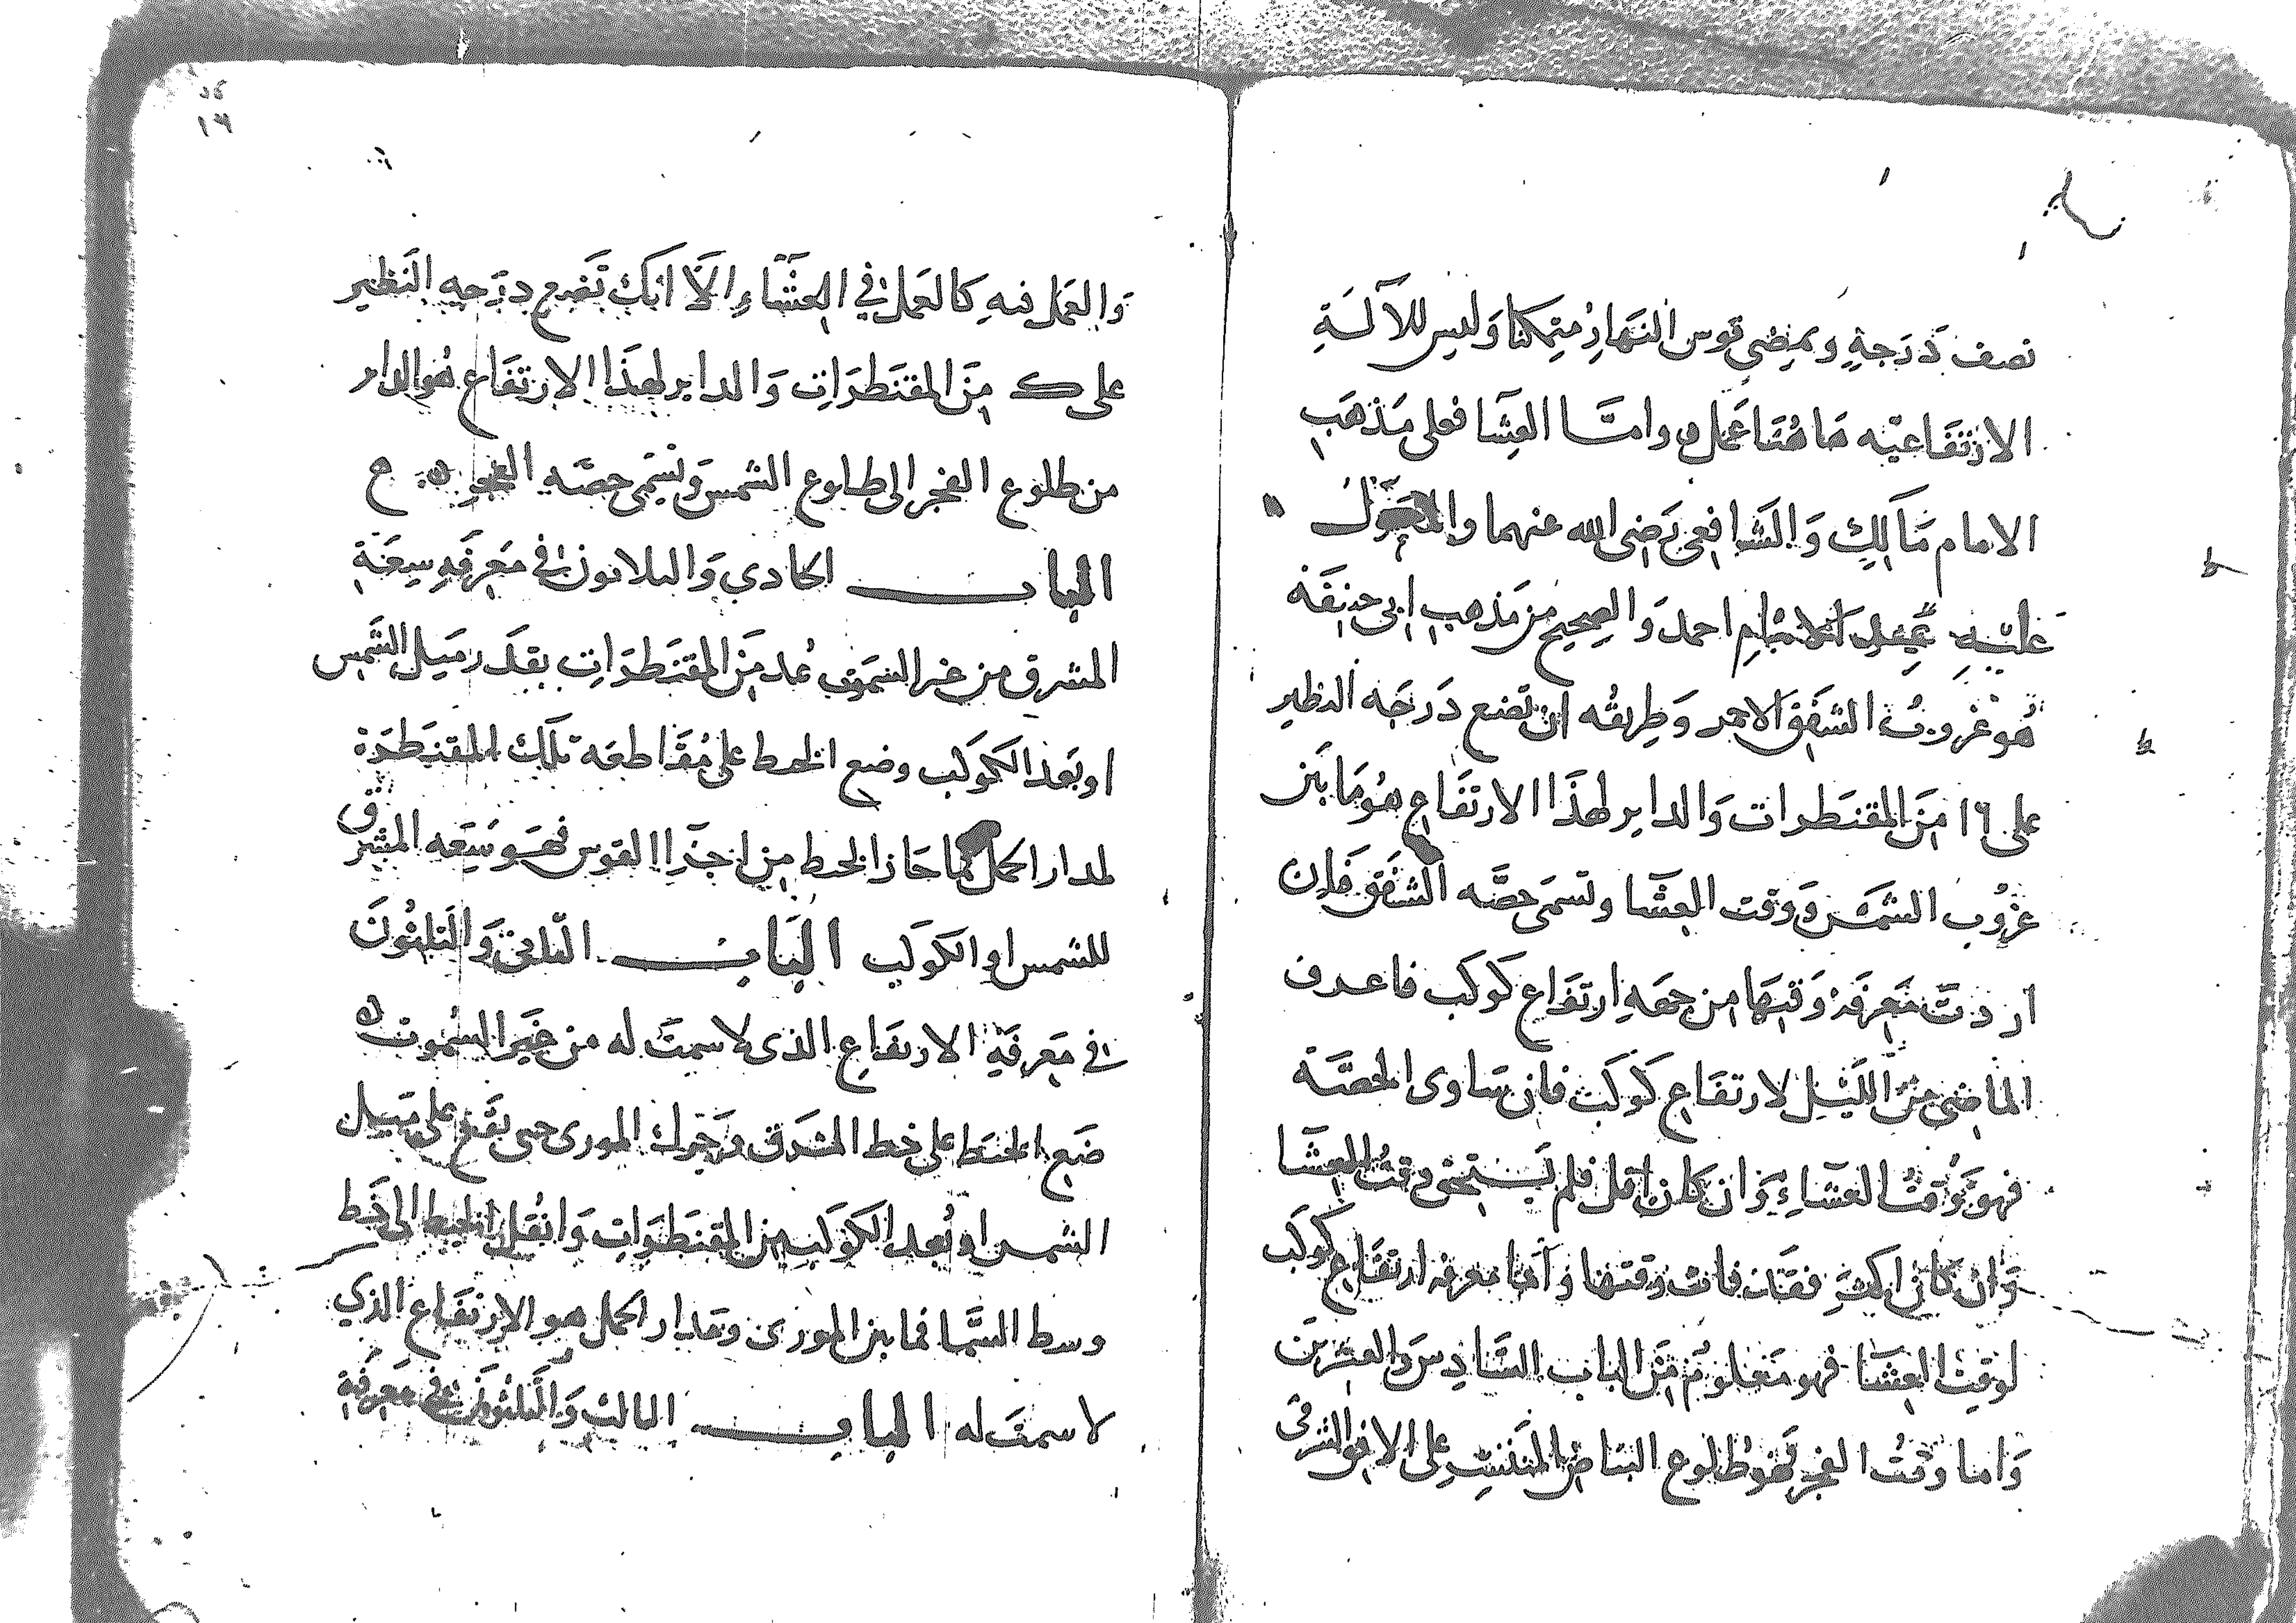 نصف دَرَجةٍ ويمضى قوس النهار متمكنا وليس للآلَةِ
الارتفاعيّه هاهُنا عَمل واما العِشَا فعلى مَذهَب
الامام مَالِكٍ وَالشافعى رَضى الله عنهما والمعول
عليه الامام احمد وَالصحيح من مَذهب ابى حنيفَه
هو غروب الشفق الاحمر وَطريقُه ان تضع دَرَجَه النظير
على ١٦ مَن المقنطرات وَالداير لهذَا الارتفَاع هُو مَا بَين
غرُوب الشمس ووقت العِشَا وتسمى حصَّه الشفق فَاِن
اردتَ مَعرِفَة وَقتها من جهَةِ ارتفَاع كَوكب فاعرف
الماضى من اللَيْل لارتفاع كَوكَب فان سَاوى الحصَّة
فهو وَقت العشاءِ وَان كان اقل فلم يستحق وقت العِشَا
وَان كان اكثر فقَد فات وقتها وَاما معرفه ارتفَاع كَوكَب
لوقت العِشَا فهو مَعلومٌ مَن الباب السَّادِس وَالعِشرين
وَاما وَقتُ الفجر فهَو طلوع البياض المنتشر على الافق الشرقى
١٦
وَالعَمل فيهِ كالعَمل فى العِشَاءِ الَّا انكَ تَضع دَرَجه النَظير
على ك مِنَ المقنَطَرَاتِ وَالداير لهذَا الارتفَاع هُو الداير
من طلوع الفجر الى طلوع الشمس وَتسَمى حصَّه الفجر ه
الباب الحادى وَالثلاثون فى مَعرِفَه سِعَة
المشرق من غير السموت عُد مِنَ المقنطرَاتِ بقدَر مَيل الشَمس
او بَعد الكَوكَب وضع الخيط على مُقَاطعَه تلك المقنطرَة
لمدار الحمل فما حَاز الخيط مِن اجزَا القوس فهَو سَعَه المشرق
للشمس او الكَوكب البَاب الثانى وَالثلثُونَ
فى مَعرفَةِ الارتفاع الذى لا سمتَ له من غيَر السموت ه
ضَع الخيَط على خط المشرَق وحَرك المورى حتى يَقَع على مَيل
الشمس او بُعد الكَوكَب مِن المقنطَرَاتِ وَانقل الخيط الى خَط
وسط السَّما فما بين المورى ومَدار الحمل هو الارتفَاع الذى
لا سمتَ له الباب الثالث وَالثلثُون فى مَعرفَةِ